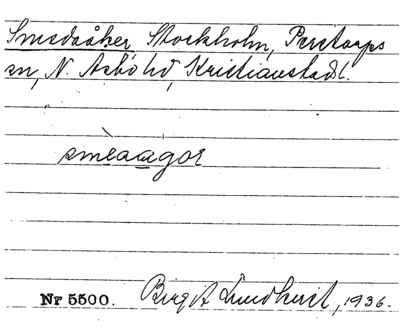 Smedaåker, Stockholm, Perstorps
sn, N. Åsbo hd, Kristianstads l.
smèaagor
Nr 5500. Birgit Lundkvist, 1936.